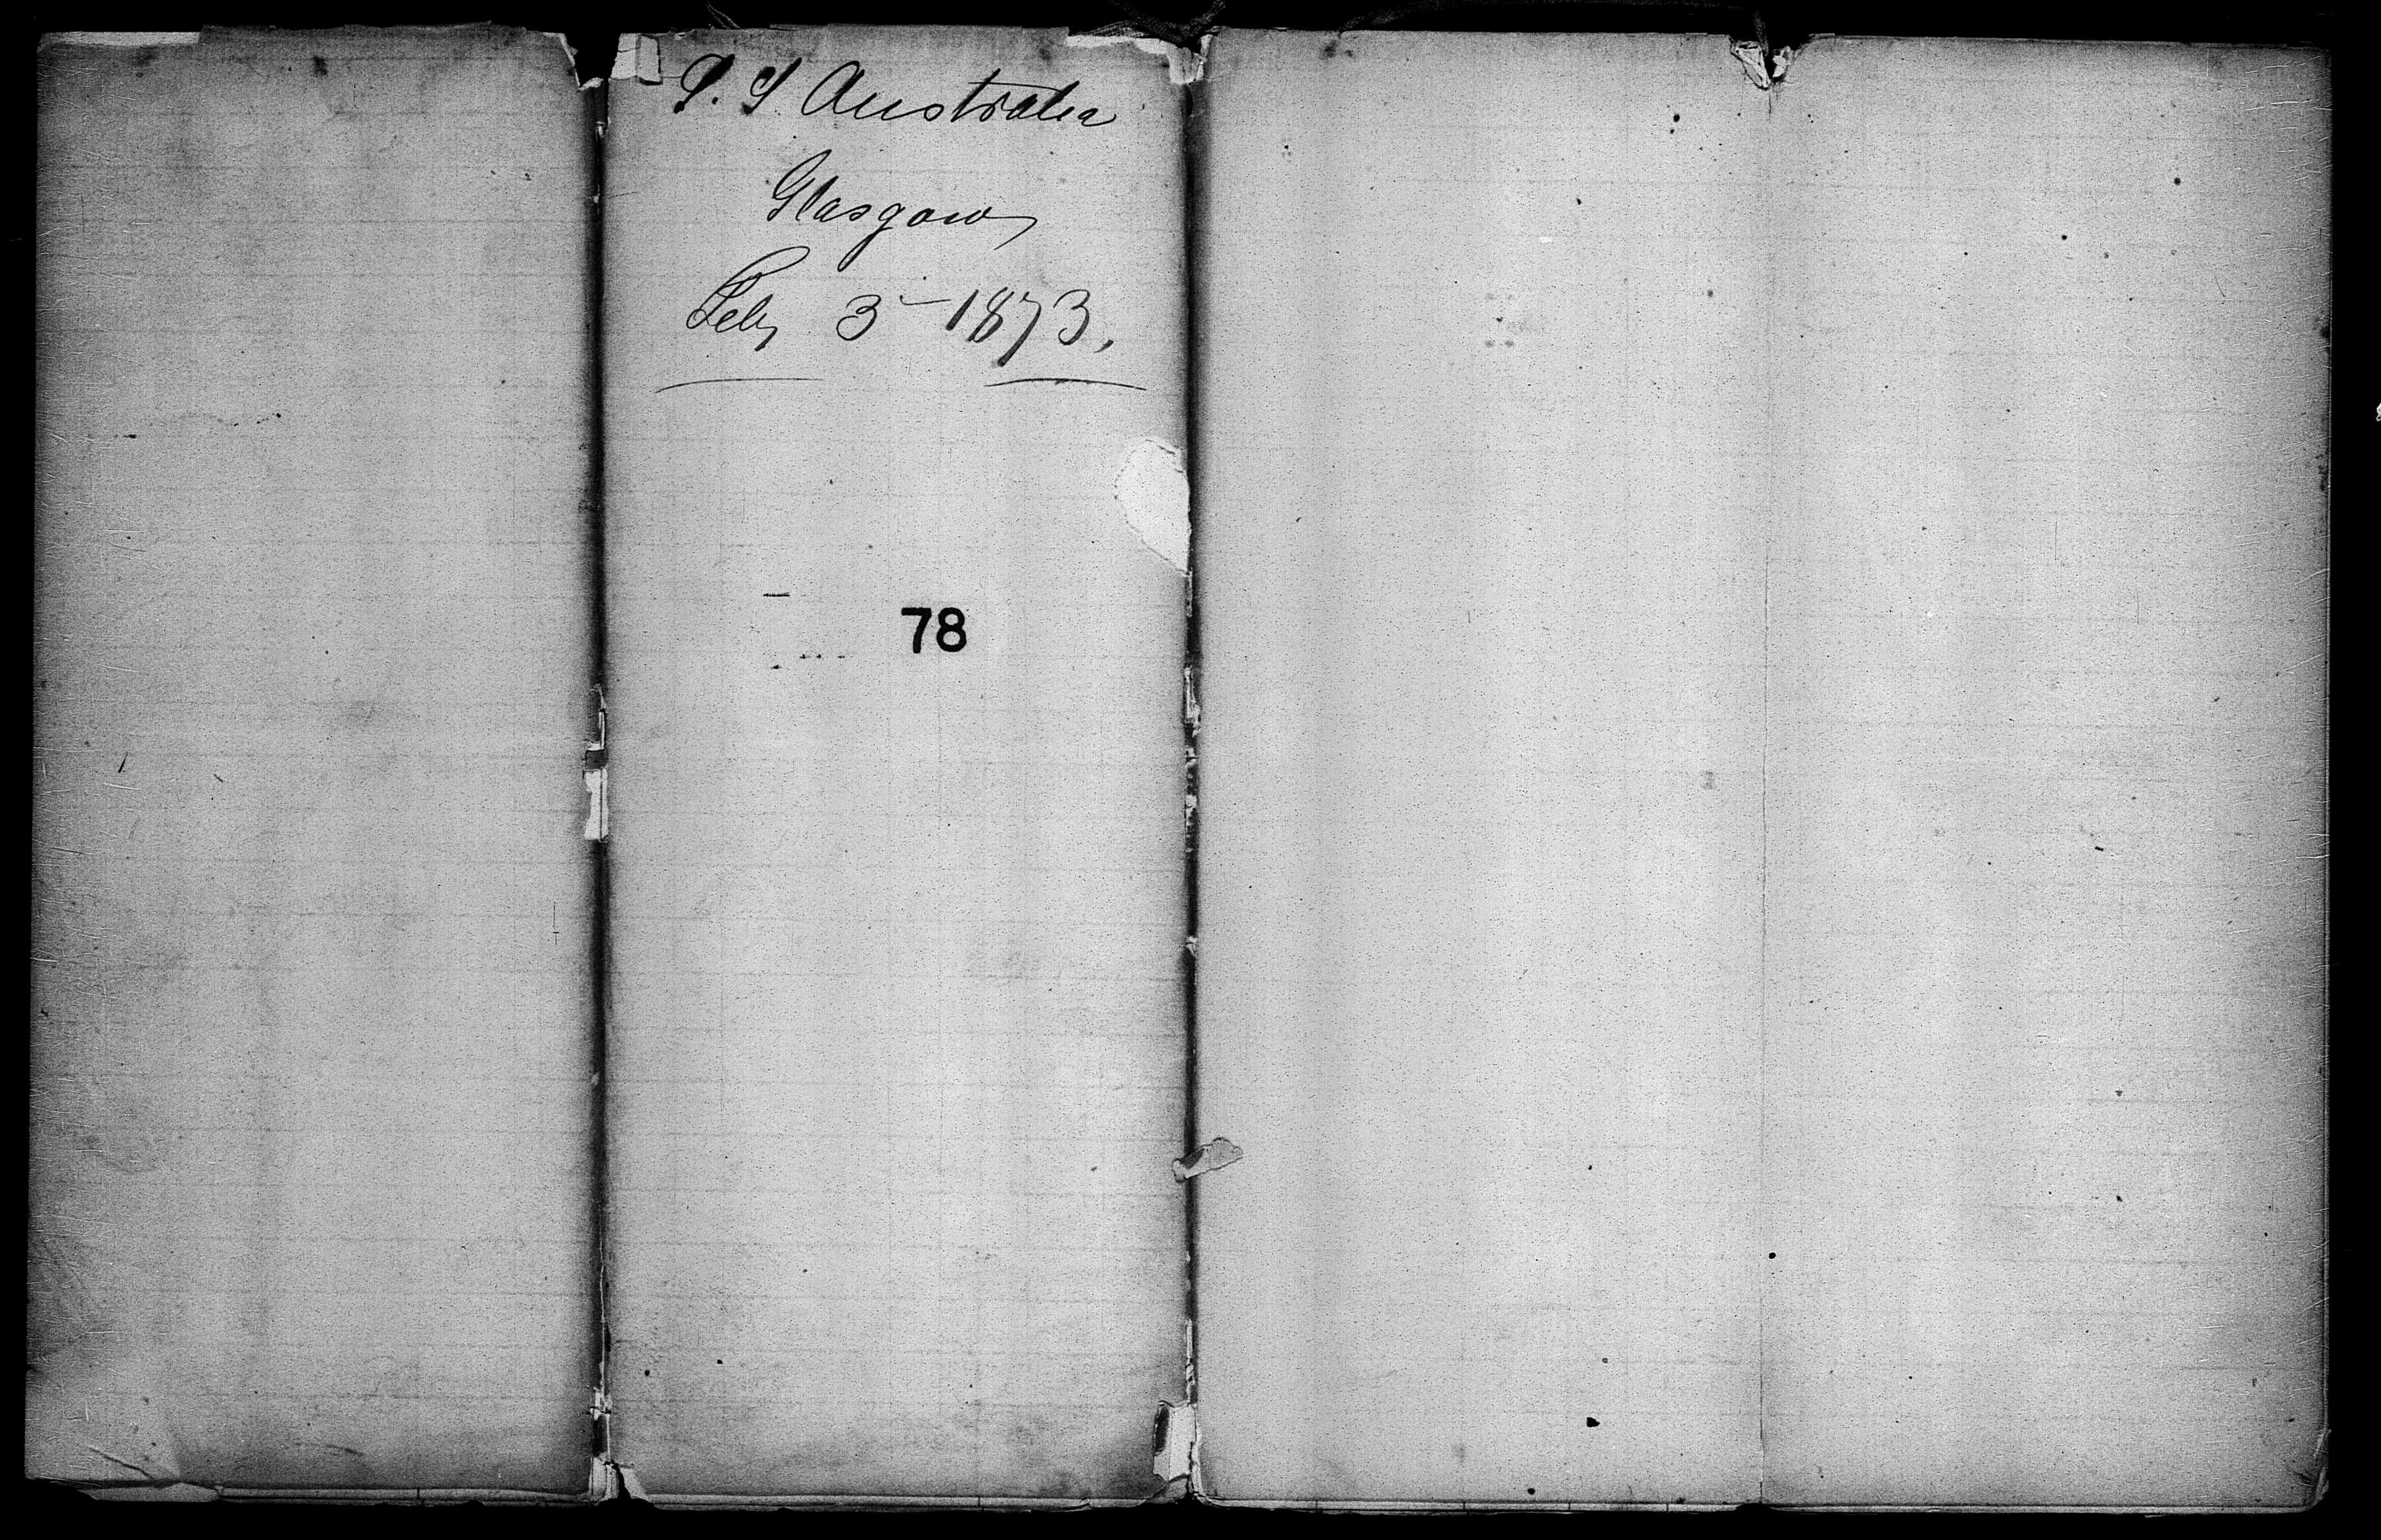 S. S Australia
Glasgow
Feby 3 - 1873.
78